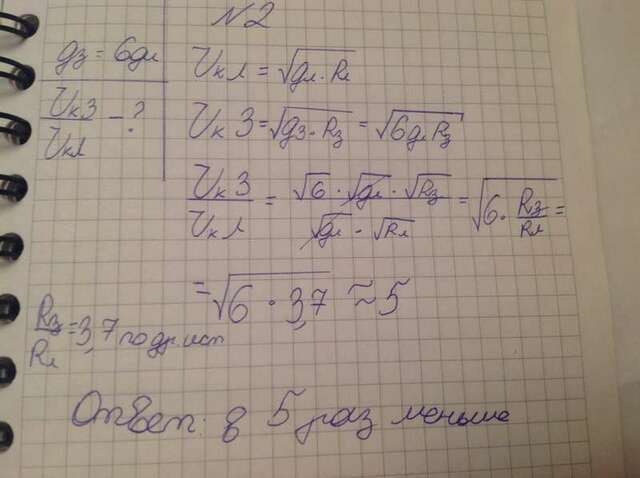 N2
gз = 6gл
Vк3 / Vкл - ?
Vкл = √gл·Rл
Vк3 = √gз·Rз = √6gлRз
Vк3 / Vкл = √6·√gл·√Rз / √gл·√Rл = √6·Rз/Rл =
= √6·3,7 ≈ 5
Rз/Rл = 3,7 по др. ист
Ответ: в 5 раз меньше